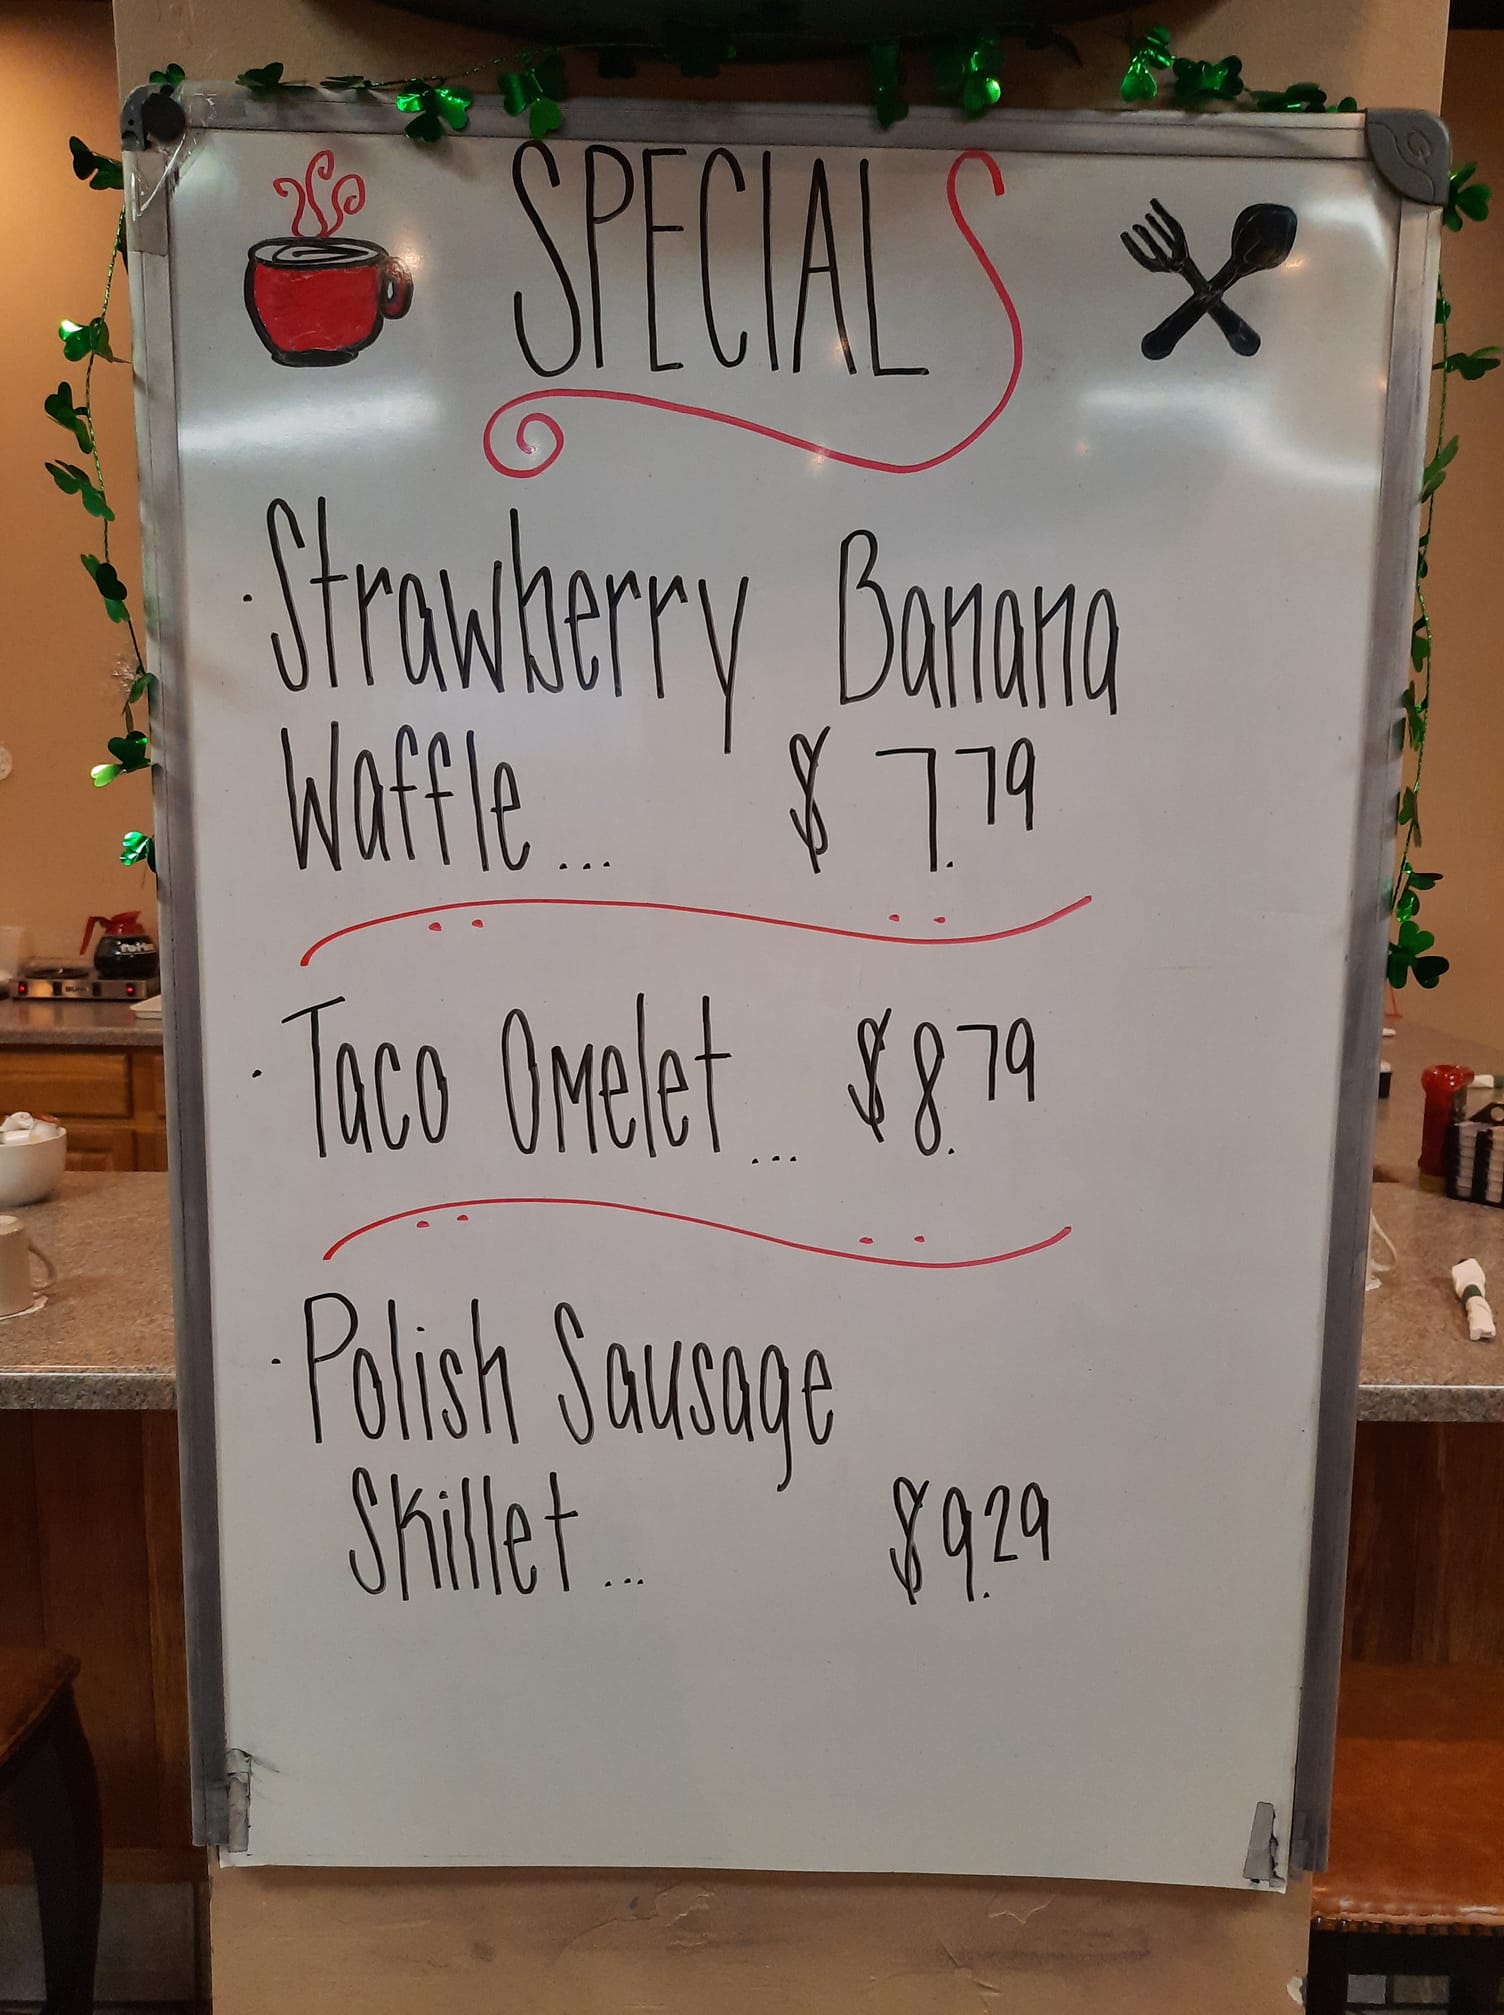 SPECIALS
· Strawberry Banana
Waffle... $7.79
· Taco Omelet... $8.79
· Polish Sausage
Skillet... $9.29